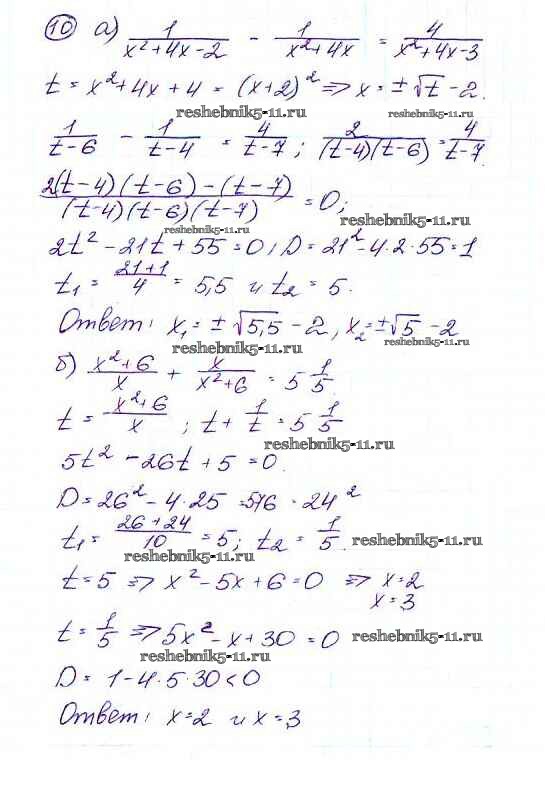 10 а) 1/(x²+4x-2) - 1/(x²+4x) = 4/(x²+4x-3)
t = x²+4x+4 = (x+2)² => x = ±√t - 2.
reshebnik5-11.ru
1/(t-6) - 1/(t-4) = 4/(t-7); 2/((t-4)(t-6)) = 4/(t-7)
reshebnik5-11.ru
(2(t-4)(t-6)-(t-7))/((t-4)(t-6)(t-7)) = 0;
reshebnik5-11.ru
2t² - 21t + 55 = 0, D = 21² - 4·2·55 = 1
t₁ = (21+1)/4 = 5,5 и t₂ = 5.
Ответ: x₁ = ±√5,5 - 2, x₂ = ±√5 - 2
reshebnik5-11.ru
reshebnik5-11.ru
б) (x²+6)/x + x/(x²+6) = 5 1/5
t = (x²+6)/x; t + 1/t = 5 1/5
reshebnik5-11.ru
5t² - 26t + 5 = 0.
D = 26² - 4·25 = 576 = 24²
t₁ = (26+24)/10 = 5; t₂ = 1/5.
reshebnik5-11.ru
reshebnik5-11.ru
t = 5 => x² - 5x + 6 = 0 => x = 2
x = 3
t = 1/5 => 5x² - x + 30 = 0
reshebnik5-11.ru
reshebnik5-11.ru
D = 1 - 4·5·30 < 0
Ответ: x = 2 и x = 3